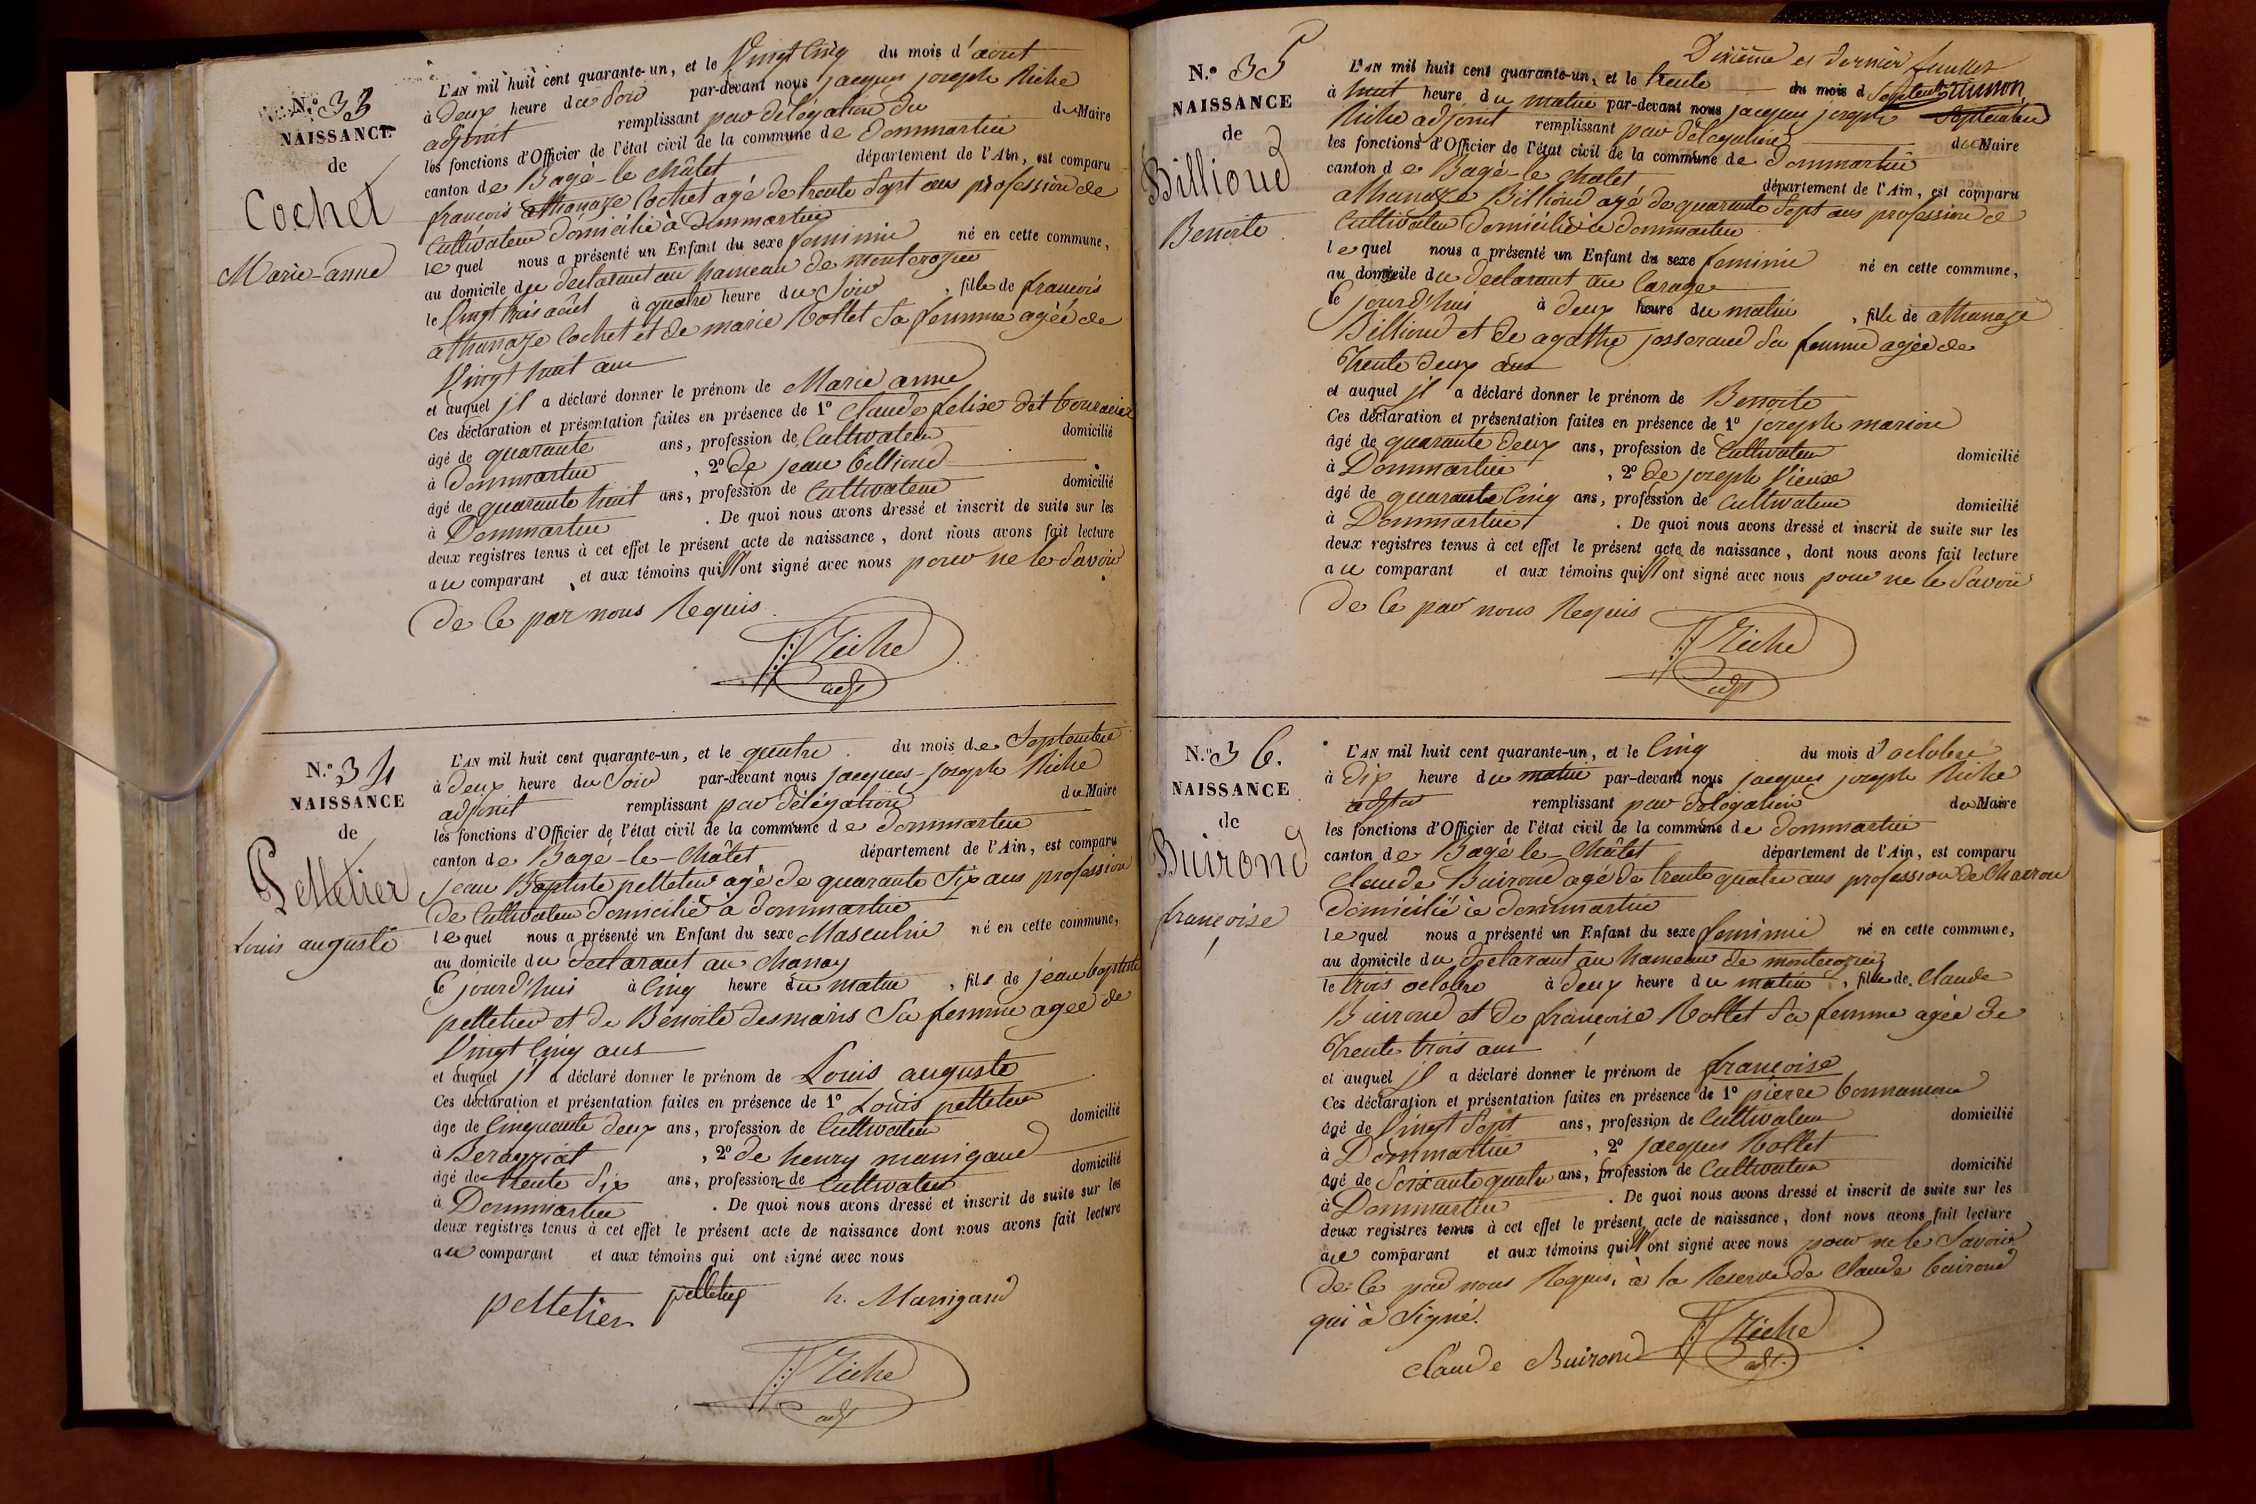 N.o 33
NAISSANCE
de
Cochet
Marie-anne
L'AN mil huit cent quarante-un, et le Vingt cinq du mois d'aout
à deux heure du Soir par-devant nous jacques joseph Riche
adjoint remplissant par délégation du du Maire
les fonctions d'Officier de l'état civil de la commune de Dommartin
canton de Bagé-le-châtel département de l'Ain, est comparu
françois athanaze Cochet agé de trente Sept ans profession de
Cultivateur domicilié à Dommartin
lequel nous a présenté un Enfant du sexe feminin né en cette commune,
au domicile du declarant au hameau de montcrozier
le Vingt trois aôut à quatre heure du Soir, fille de francois
athanaze Cochet et de marie Rollet Sa femme agée de
Vingt huit ans
et auquel il a déclaré donner le prénom de Marie anne
Ces déclaration et présentation faites en présence de 1o Claude felix dit
âgé de quarante ans, profession de Cultivateur domicilié
à dommartin, 2o de jean billioud
âgé de quarante huit ans, profession de Cultivateur domicilié
à Dommartin. De quoi nous avons dressé et inscrit de suite sur les
deux registres tenus à cet effet le présent acte de naissance, dont nous avons fait lecture
au comparant, et aux témoins qui n'ont signé avec nous pour ne le Savoir
de ce par nous Requis
Riche
adjt
N.o 34
NAISSANCE
de
Pelletier
Louis auguste
L'AN mil huit cent quarante-un, et le quatre du mois de Septembre
à deux heure du Soir par-devant nous jacques-joseph Riche
adjoint remplissant par délégation du Maire
les fonctions d'Officier de l'état civil de la commune de dommartin
canton de Bagé-le-châtel département de l'Ain, est comparu
jean Baptiste pelletier agé de quarante Six ans profession
de Cultivateur domicilié à dommartin
lequel nous a présenté un Enfant du sexe Masculin né en cette commune,
au domicile du declarant au chanay
le jourd'hui à Cinq heure du matin, fils de jean baptiste
pelletier et de Benoite desmaris Sa femme agée de
Vingt Cinq ans
et auquel il a déclaré donner le prénom de Louis auguste
Ces déclaration et présentation faites en présence de 1o Louis pelletier
âgé de Cinquante deux ans, profession de Cultivateur domicilié
à Bereyziat, 2o de henry manigaud
âgé de trente Six ans, profession de Cultivateur domicilié
à Dommartin. De quoi nous avons dressé et inscrit de suite sur les
deux registres tenus à cet effet le présent acte de naissance dont nous avons fait lecture
au comparant et aux témoins qui ont signé avec nous
pelletier pelletier h. Manigaud
Riche
adjt
Dixième et dernier feuillet
N.o 35
NAISSANCE
de
Billioud
Benoite
L'AN mil huit cent quarante-un, et le trente du mois d Septembre
à huit heure du matin par-devant nous jacques joseph Septembre
Riche adjoint remplissant par délégation du Maire
les fonctions d'Officier de l'état civil de la commune de Dommartin
canton de Bagé-le-chatel département de l'Ain, est comparu
athanaze Billioud agé de quarante Sept ans profession de
Cultivateur domicilié à dommartin
lequel nous a présenté un Enfant du sexe feminin né en cette commune,
au domicile du declarant au Carage
le jourd'hui à deux heure du matin, fille de athanaze
Billioud et de agathe josserand Sa femme agée de
Trente deux ans
et auquel il a déclaré donner le prénom de Benoite
Ces déclaration et présentation faites en présence de 1o joseph marion
âgé de quarante deux ans, profession de Cultivateur domicilié
à Dommartin, 2o de joseph Vieux
âgé de quarante Cinq ans, profession de Cultivateur domicilié
à Dommartin. De quoi nous avons dressé et inscrit de suite sur les
deux registres tenus à cet effet le présent acte de naissance, dont nous avons fait lecture
au comparant et aux témoins qui n'ont signé avec nous pour ne le Savoir
de ce par nous Requis
Riche
adjt
N.o 36.
NAISSANCE
de
Buiroud
françoise
L'AN mil huit cent quarante-un, et le Cinq du mois d'octobre
à Dix heure du matin par-devant nous jacques joseph Riche
adjoint remplissant par délégation du Maire
les fonctions d'Officier de l'état civil de la commune de dommartin
canton de Bagé le-Châtel département de l'Ain, est comparu
Claude Buiroud agé de trente quatre ans profession de Charron
domicilié à dommartin
lequel nous a présenté un Enfant du sexe feminin né en cette commune,
au domicile du declarant au hameau de montcrozier
le trois octobre à deux heure du matin, fille de Claude
Buiroud et de françoise Rollet Sa femme agée de
Trente trois ans
et auquel il a déclaré donner le prénom de françoise
Ces déclaration et présentation faites en présence de 1o pierre bonnamour
âgé de Vingt Sept ans, profession de Cultivateur domicilié
à Dommartin, 2o jacques Rollet
âgé de Soixante quatre ans, profession de Cultivateur domicilié
à Dommartin. De quoi nous avons dressé et inscrit de suite sur les
deux registres tenus à cet effet le présent acte de naissance, dont nous avons fait lecture
au comparant et aux témoins qui n'ont signé avec nous pour ne le Savoir
de ce par nous Requis, à la Reserve de Claude buiroud
qui à Signé.
Claude Buiroud Riche
adjt.